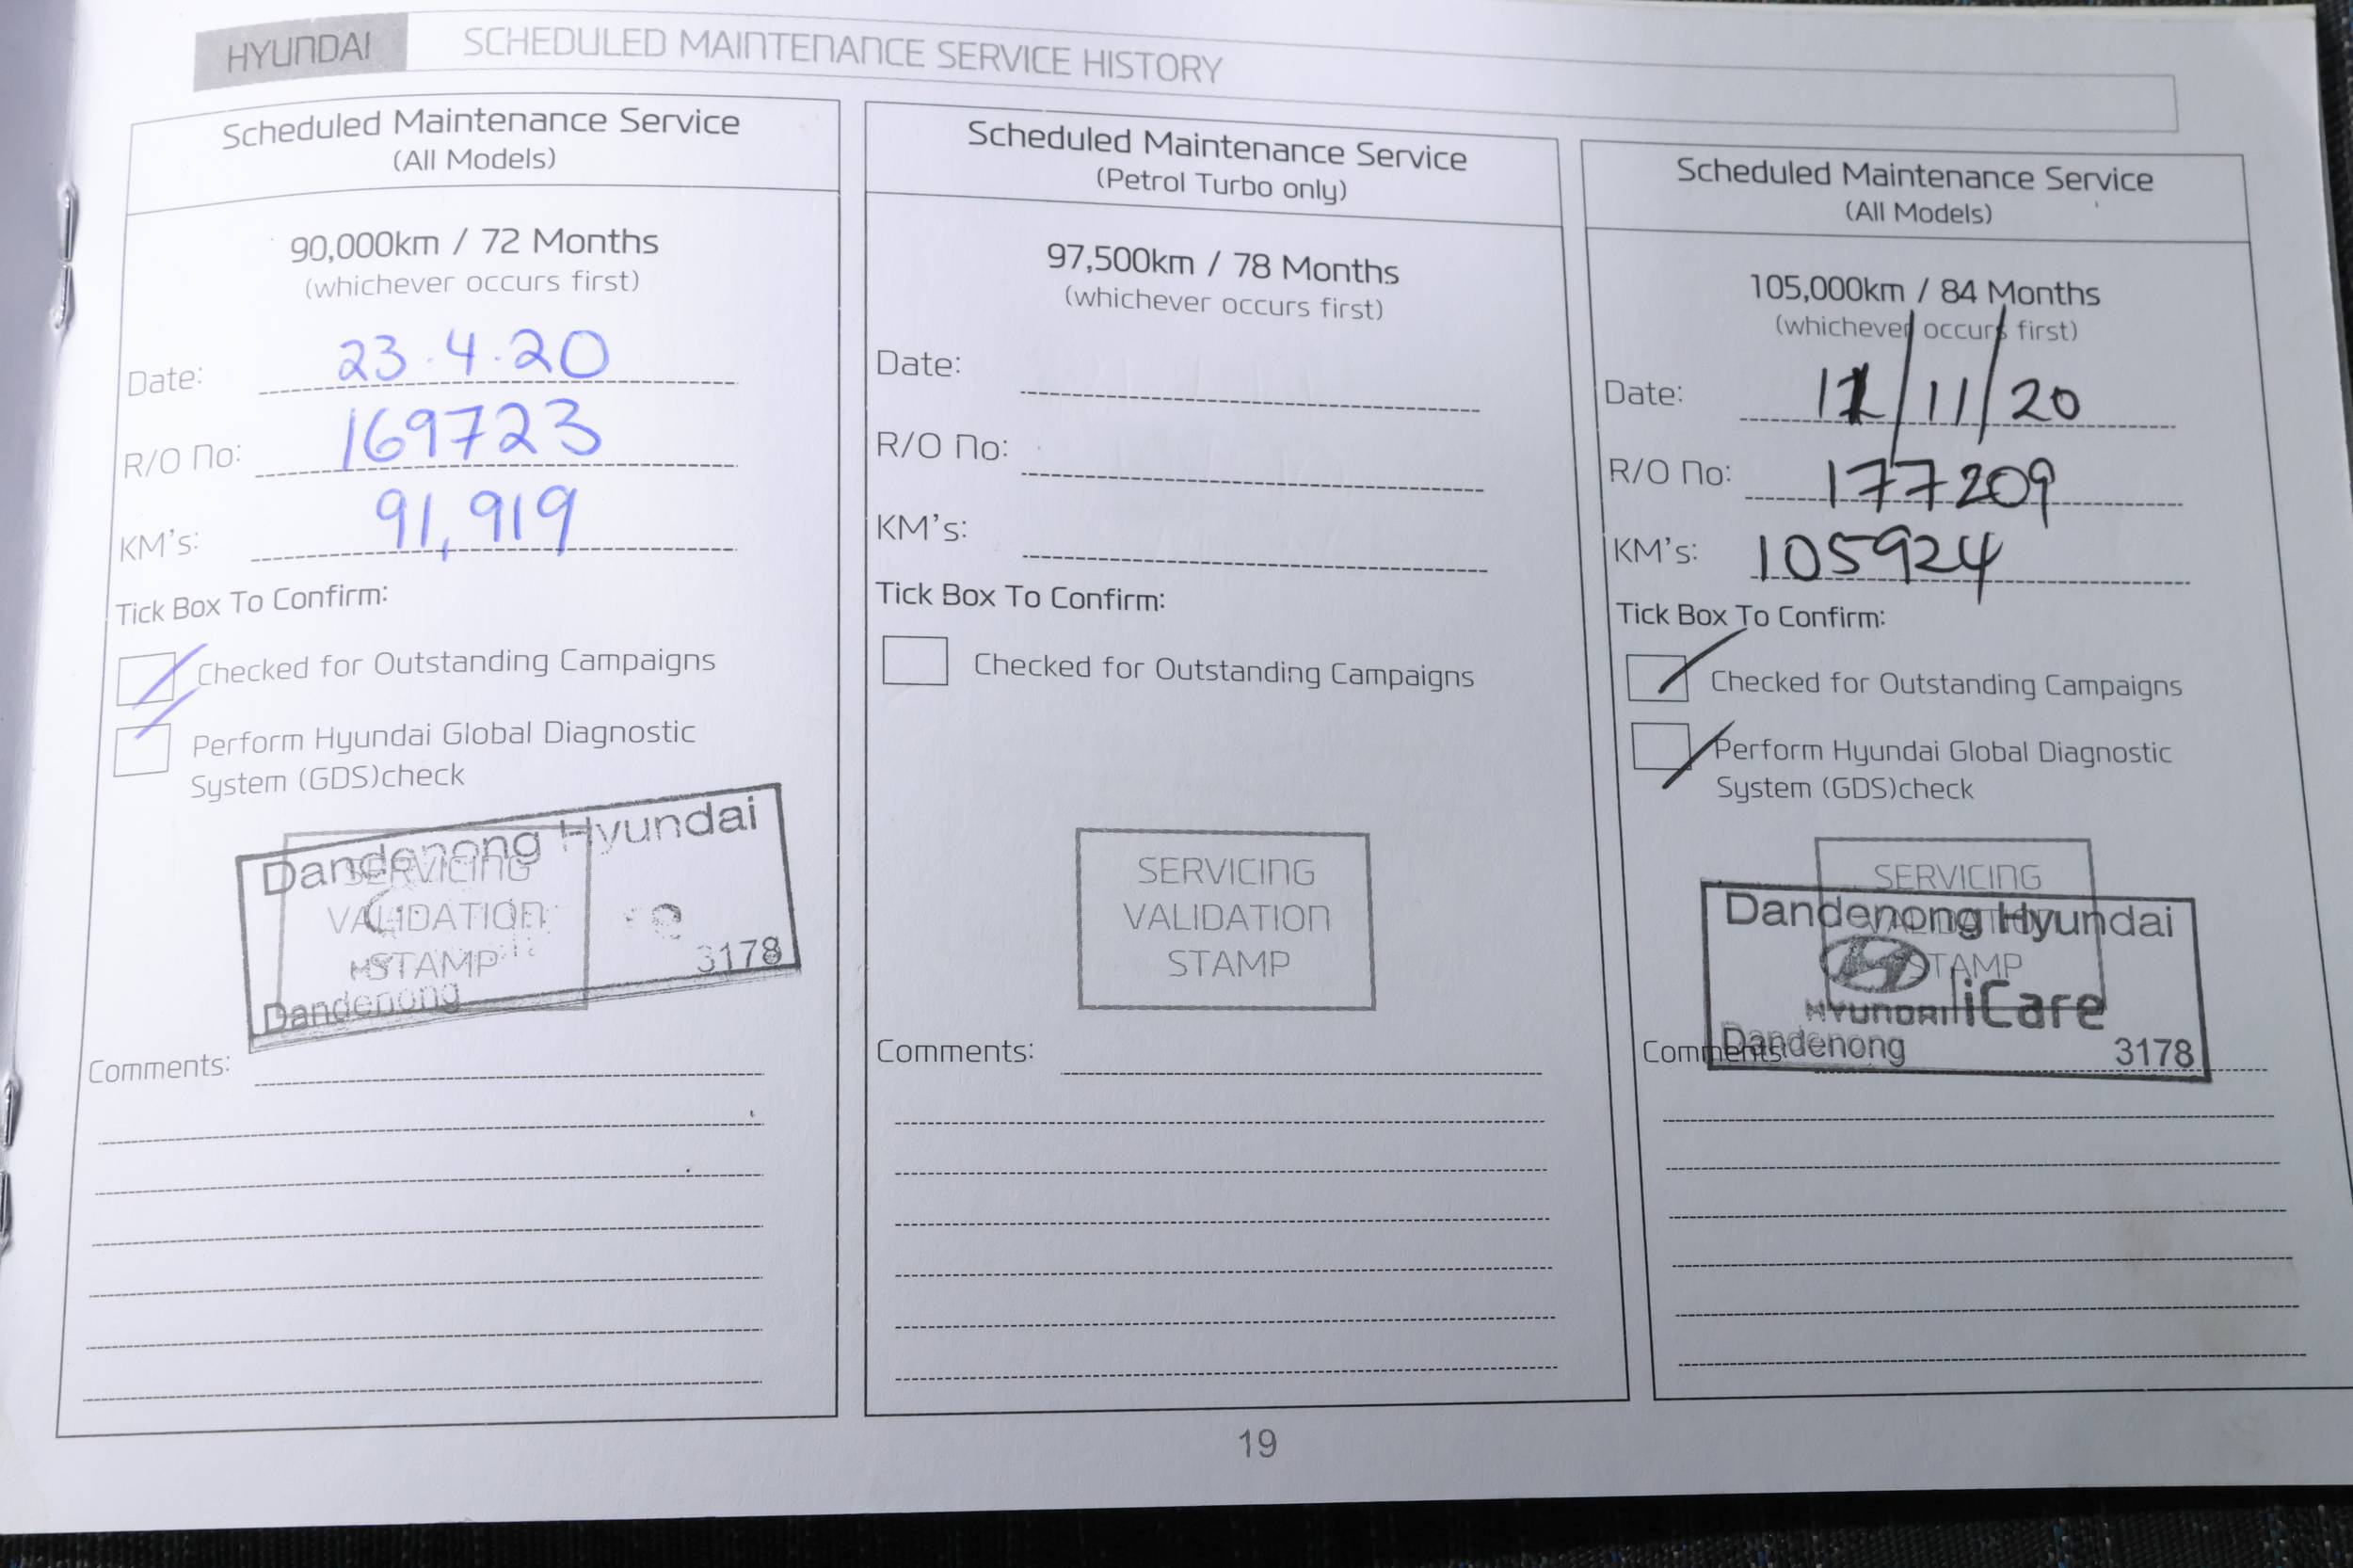 HYUNDAI SCHEDULED MAINTENANCE SERVICE HISTORY
Scheduled Maintenance Service
(All Models)
90,000km / 72 Months
(whichever occurs first)
Date: 23.4.20
R/O No: 169723
KM's: 91,919
Tick Box To Confirm:
Checked for Outstanding Campaigns
Perform Hyundai Global Diagnostic
System (GDS)check
Dandenong Hyundai
SERVICING
VALIDATION
STAMP
Dandenong 3178
Comments:
Scheduled Maintenance Service
(Petrol Turbo only)
97,500km / 78 Months
(whichever occurs first)
Date:
R/O No:
KM's:
Tick Box To Confirm:
Checked for Outstanding Campaigns
SERVICING
VALIDATION
STAMP
Comments:
Scheduled Maintenance Service
(All Models)
105,000km / 84 Months
(whichever occurs first)
Date: /11/20
R/O No: 177209
KM's: 105924
Tick Box To Confirm:
Checked for Outstanding Campaigns
Perform Hyundai Global Diagnostic
System (GDS)check
SERVICING
Dandenong Hyundai
STAMP
HYUNDAI iCare
Dandenong 3178
Comments:
19